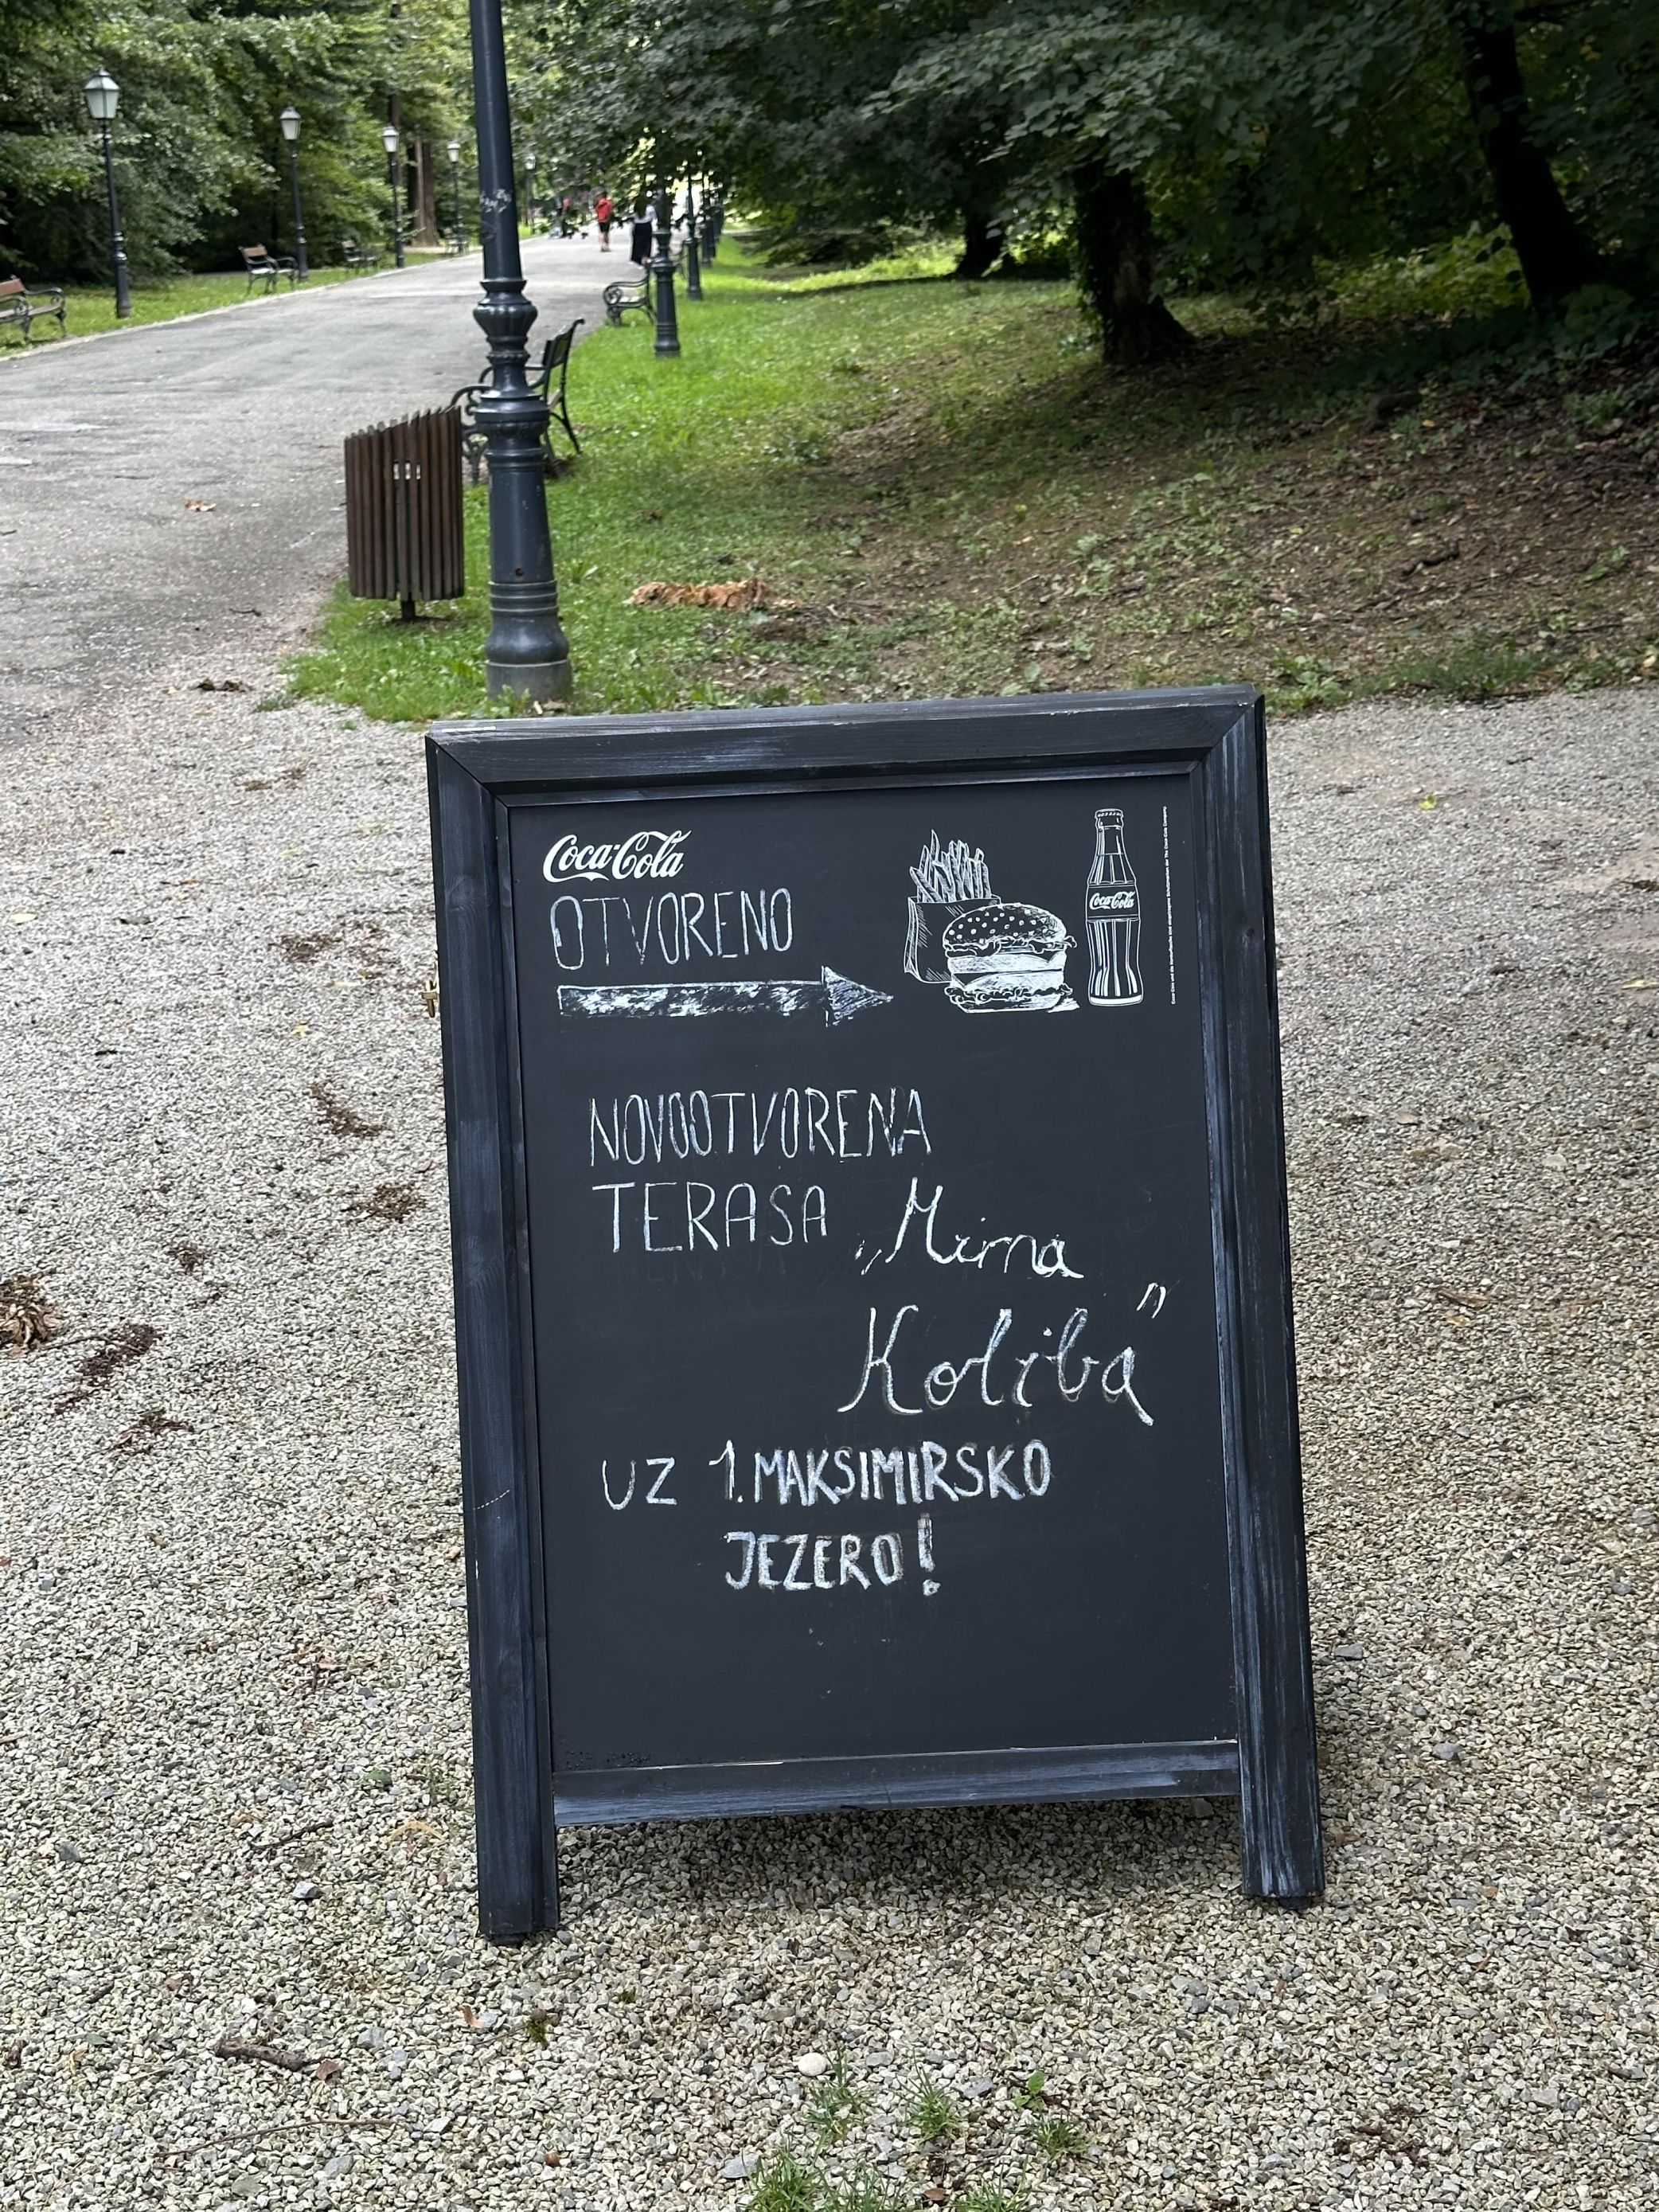 Coca-Cola
OTVORENO
Coca-Cola
NOVOOTVORENA
TERASA „Mirna
Koliba"
UZ 1. MAKSIMIRSKO
JEZERO!